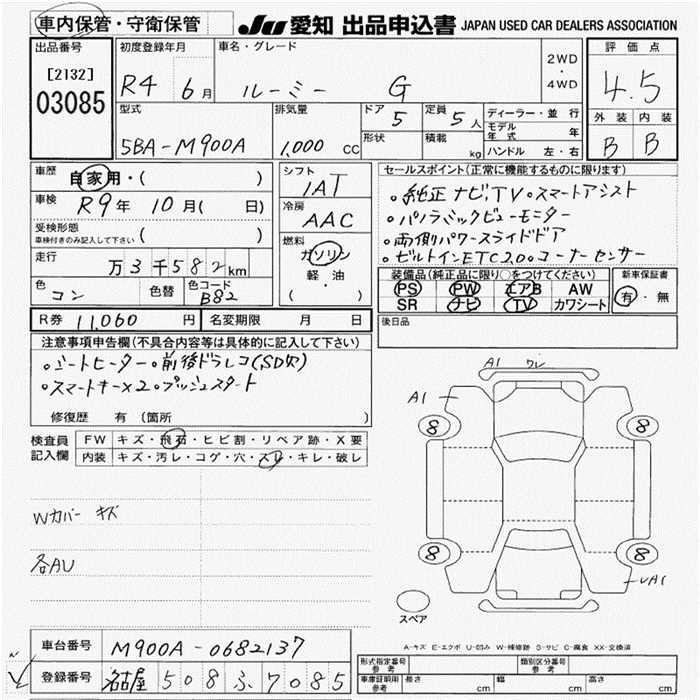 車内保管・守衛保管 JU 愛知 出品申込書 JAPAN USED CAR DEALERS ASSOCIATION
出品番号 初度登録年月 車名・グレード 評価点
[2132]
03085
R4 6月 ルーミー G 2WD・4WD 4.5
型式 排気量 ドア 5 定員 5人 ディーラー・並行 外装 内装
5BA-M900A 1,000 CC 形状 積載 kg モデル年式 年 B B
ハンドル 左・右
車歴 自家用・( ) シフト IAT セールスポイント(正常に機能するものに限ります)
車検 R9年 10月( 日) 冷房 AAC
。純正ナビ,TV。スマートアシスト
。パノラミックビューモニター
受検形態 車検付きのみ記入して下さい ( ) 燃料 ガソリン
。両側パワースライドドア
。ビルトインETC2.0。コーナーセンサー
走行 万3千582km 軽・油 ( )
装備品(純正品に限り○をつけてください) 新車保証書
色 コン 色替 色コード B82
PS PW エアB AW 有・無
SR ナビ TV カワシート
R券 11,060 円 名変期限 月 日 後日品
注意事項申告欄(不具合内容等は具体的に記入して下さい)
。シートヒーター。前後ドラレコ(SD欠)
。スマートキー×2。プッシュスタート
修復歴 有 (箇所 )
検査員記入欄 FW キズ・飛石・ヒビ割・リペア跡・X要
内装 キズ・汚レ・コゲ・穴・スレ・キレ・破レ
A1 ワレ
A1
8 8
Wカバー キズ
各AU
8 8
A1
スペア
A-キズ E-エクボ U-凹み W-補修跡 S-サビ C-腐食 XX-交換済
車台番号 M900A-0682137
登録番号 名古屋 508 ふ 7085
形式指定番号 参考 類別区分番号 参考
車庫証明用 参考 長さ cm 幅 cm 高さ cm